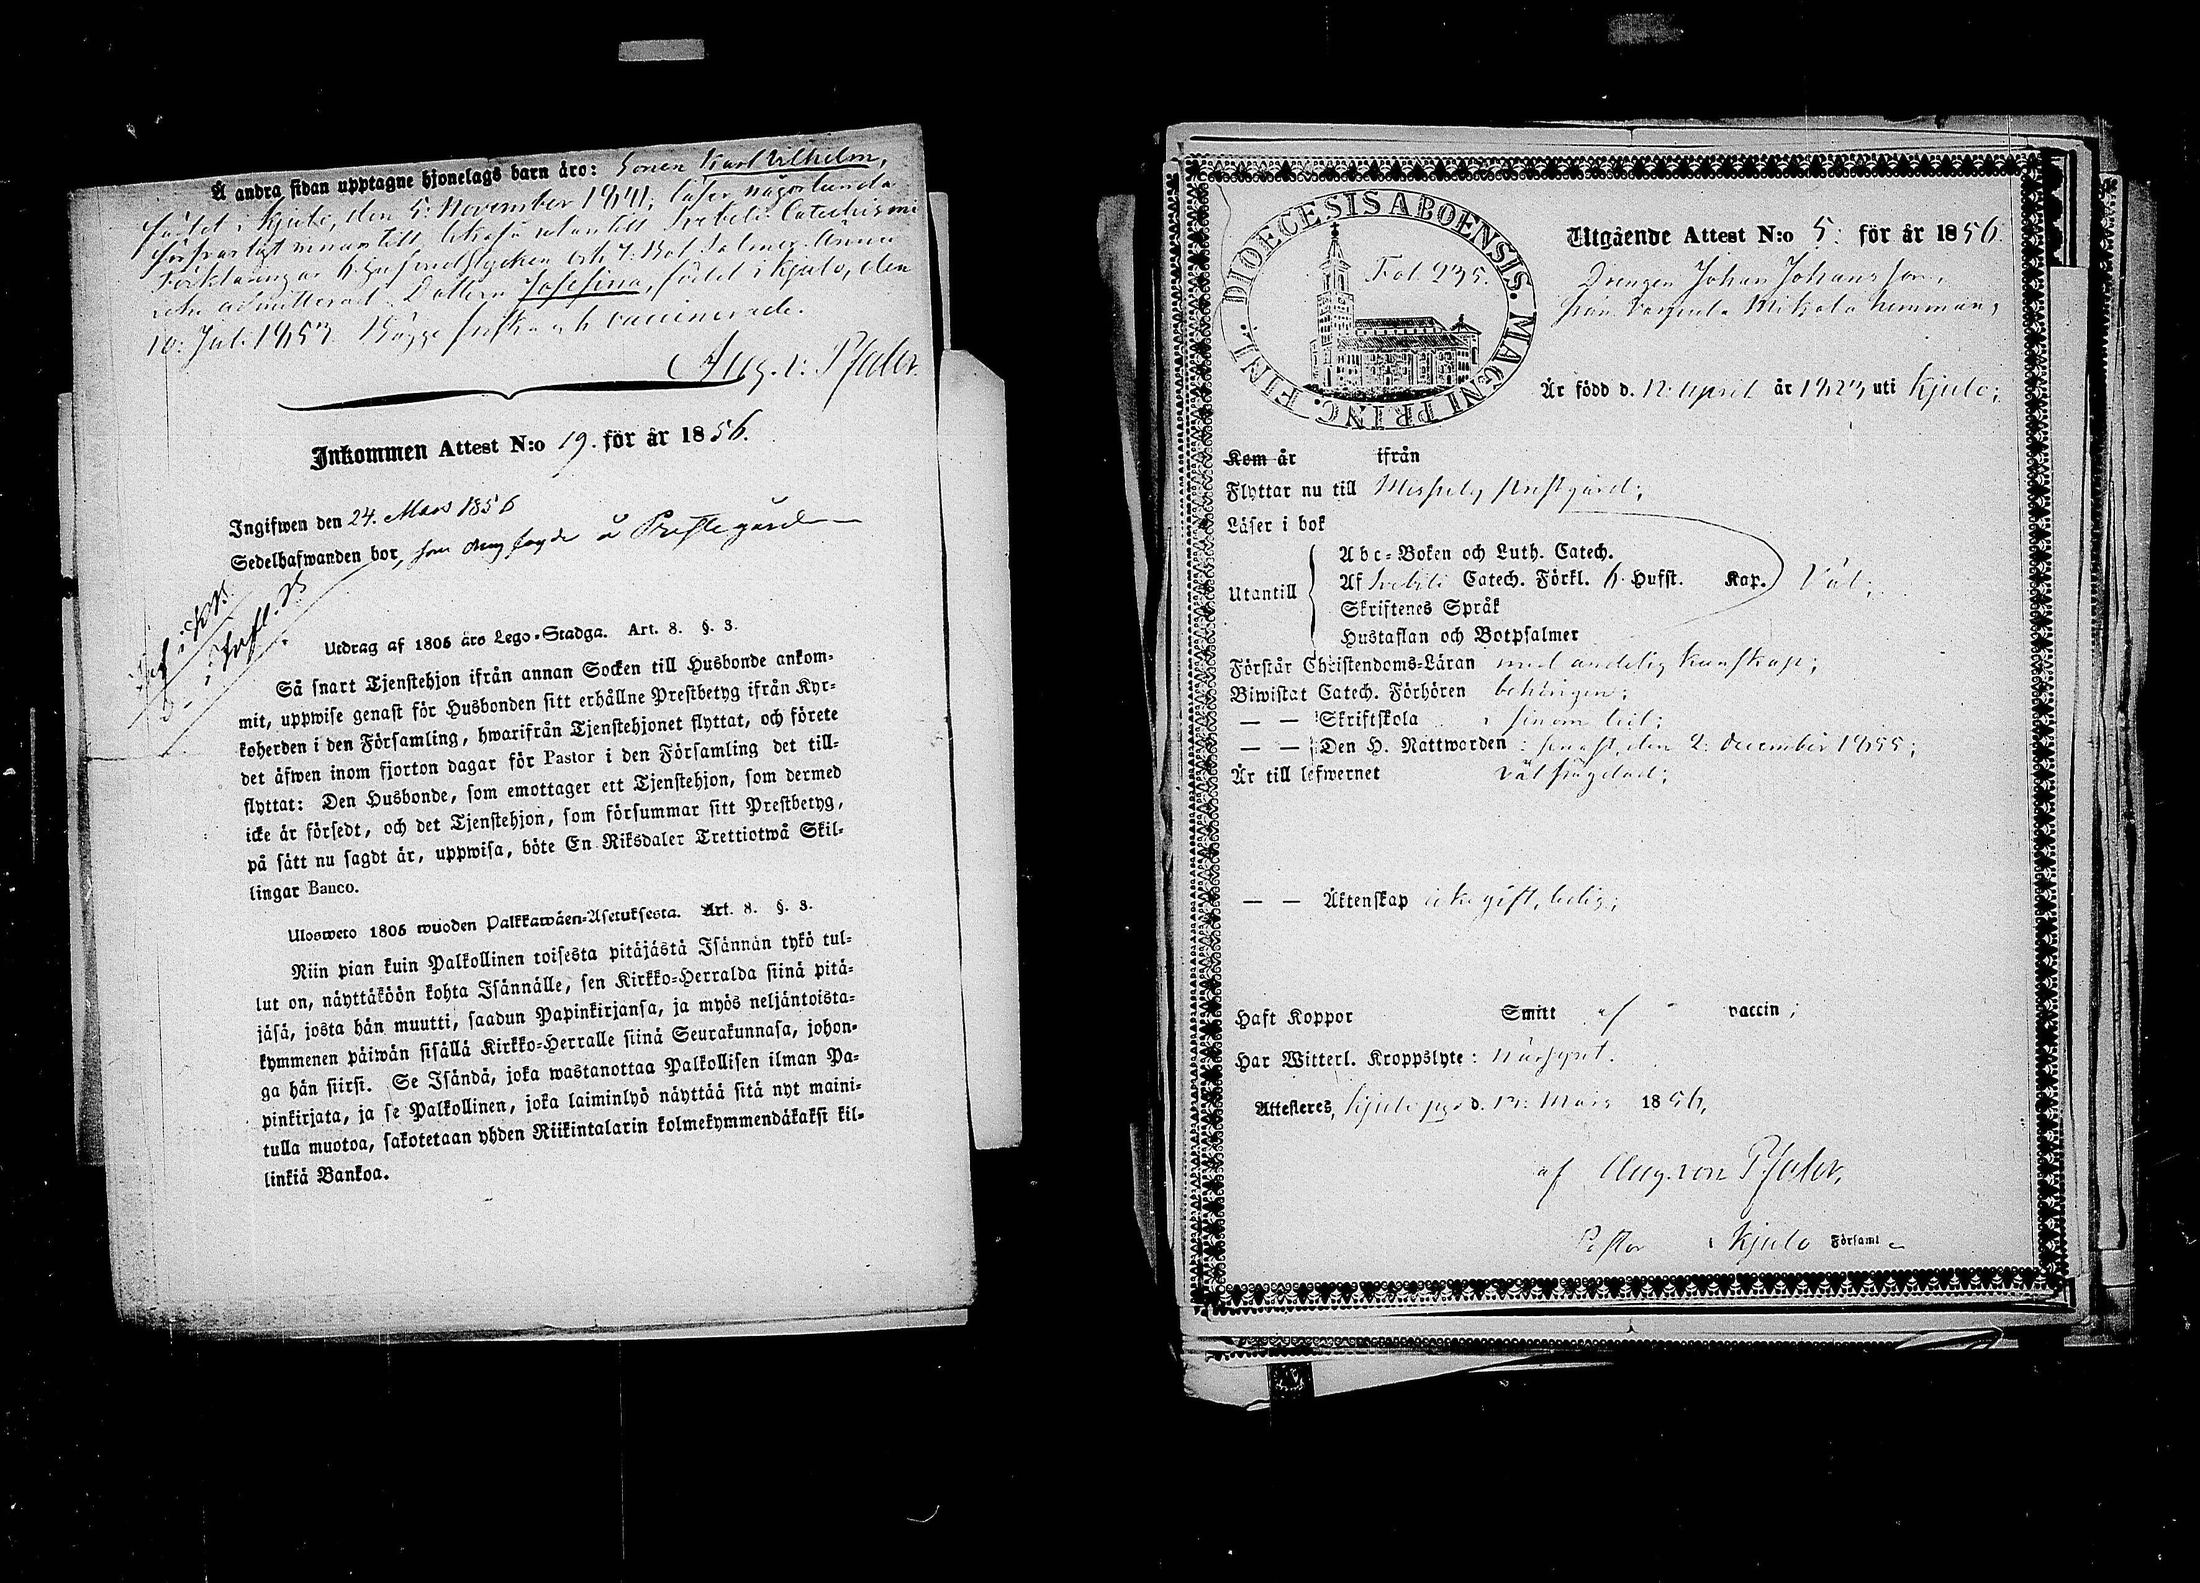 Å andra sidan upptagne hjonelags barn äro: Sonen Karl Vilhelm,
född i Kjulo, den 5: November 1841, läser någorlunda
innantill, likaså utantill Svebelii Catechismi
Förklaringar 6. Hufvudstycken och 7. Bot Psalmer. Ännu
icke admitterad. Dottern Josefina, född i Kjulo, den
10. Juli 1853 Bägge friska och vaccinerade.
Aug. v: Pfaler.
Inkommen Attest N:o 19. för år 1856.
Ingifwen den 24. Mars 1856
Sedelhafwanden bor, som äng sagde å Prestegården
Utdrag af 1805 års Lego-Stadga. Art. 8. §. 3.
Så snart Tjenstehjon ifrån annan Socken till Husbonde ankom-
mit, uppwise genast för Husbonden sitt erhållne Prestbetyg ifrån Kyr-
koherden i den Församling, hwarifrån Tjenstehjonet flyttat, och förete
det äfwen inom fjorton dagar för Pastor i den Församling det till-
flyttat: Den Husbonde, som emottager ett Tjenstehjon, som dermed
icke är försedt, och det Tjenstehjon, som försummar sitt Prestbetyg,
på sätt nu sagdt är, uppwisa, böte En Riksdaler Trettiotwå Skil-
lingar Banco.
Uloswеto 1805 wuoden Palkkawäen-Asetuksesta. Art. 8. §. 3.
Niin pian kuin Palkollinen toisesta pitäjästä Isännän tykö tul-
lut on, näyttäköön kohta Isännälle, sen Kirkko-Herralda siinä pitä-
jäsä, josta hän muutti, saadun Papinkirjansa, ja myös neljäntoista-
kymmenen päiwän sisällä Kirkko-Herralle siinä Seurakunnasa, johon-
ga hän siirsi. Se Isändä, joka wastanottaa Palkollisen ilman Pa-
pinkirjata, ja se Palkollinen, joka laiminlyö näyttää sitä nyt maini-
tulla muotoa, sakotetaan yhden Riikintalarin kolmekymmendäkaksi kil-
linkiä Bankoa.
DIOECESIS ABOENSIS. MAGNI PRINC. FINL.
Fol 235.
Utgående Attest N:o 5: för år 1856.
Drengen Johan Johansson,
från Mikola hemman,
Är född d. 12. April år 1823 uti Kjulo;
Kom år ifrån
Flyttar nu till prestgård;
Läser i bok
Utantill
Abc-Boken och Luth. Catech.
Af Svebilii Catech. Förkl. 6. Hufst. Kap.
Väl;
Skriftenes Språk
Hustaflan och Botpsalmer
Förstår Christendoms-Läran med andelig kunskap;
Biwistat Catech. Förhören behörigen;
— — Skriftskola i sinom tid;
— — Den H. Nattwarden: senast, den 2: December 1855;
Är till lefwernet väl frägdad;
— — Äktenskap icke gift, ledig;
Haft Koppor Smitt af vaccin;
Har Witterl. Kroppslyte: närsynt.
Attesteres, Kjulo pgd d. 13: Mars 1856,
af Aug. von Pfaler,
Pastor i Kjulo Församl